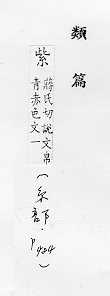 類篇
紫
蔣氏切說文帛
青赤色文一
(糸部·P484)